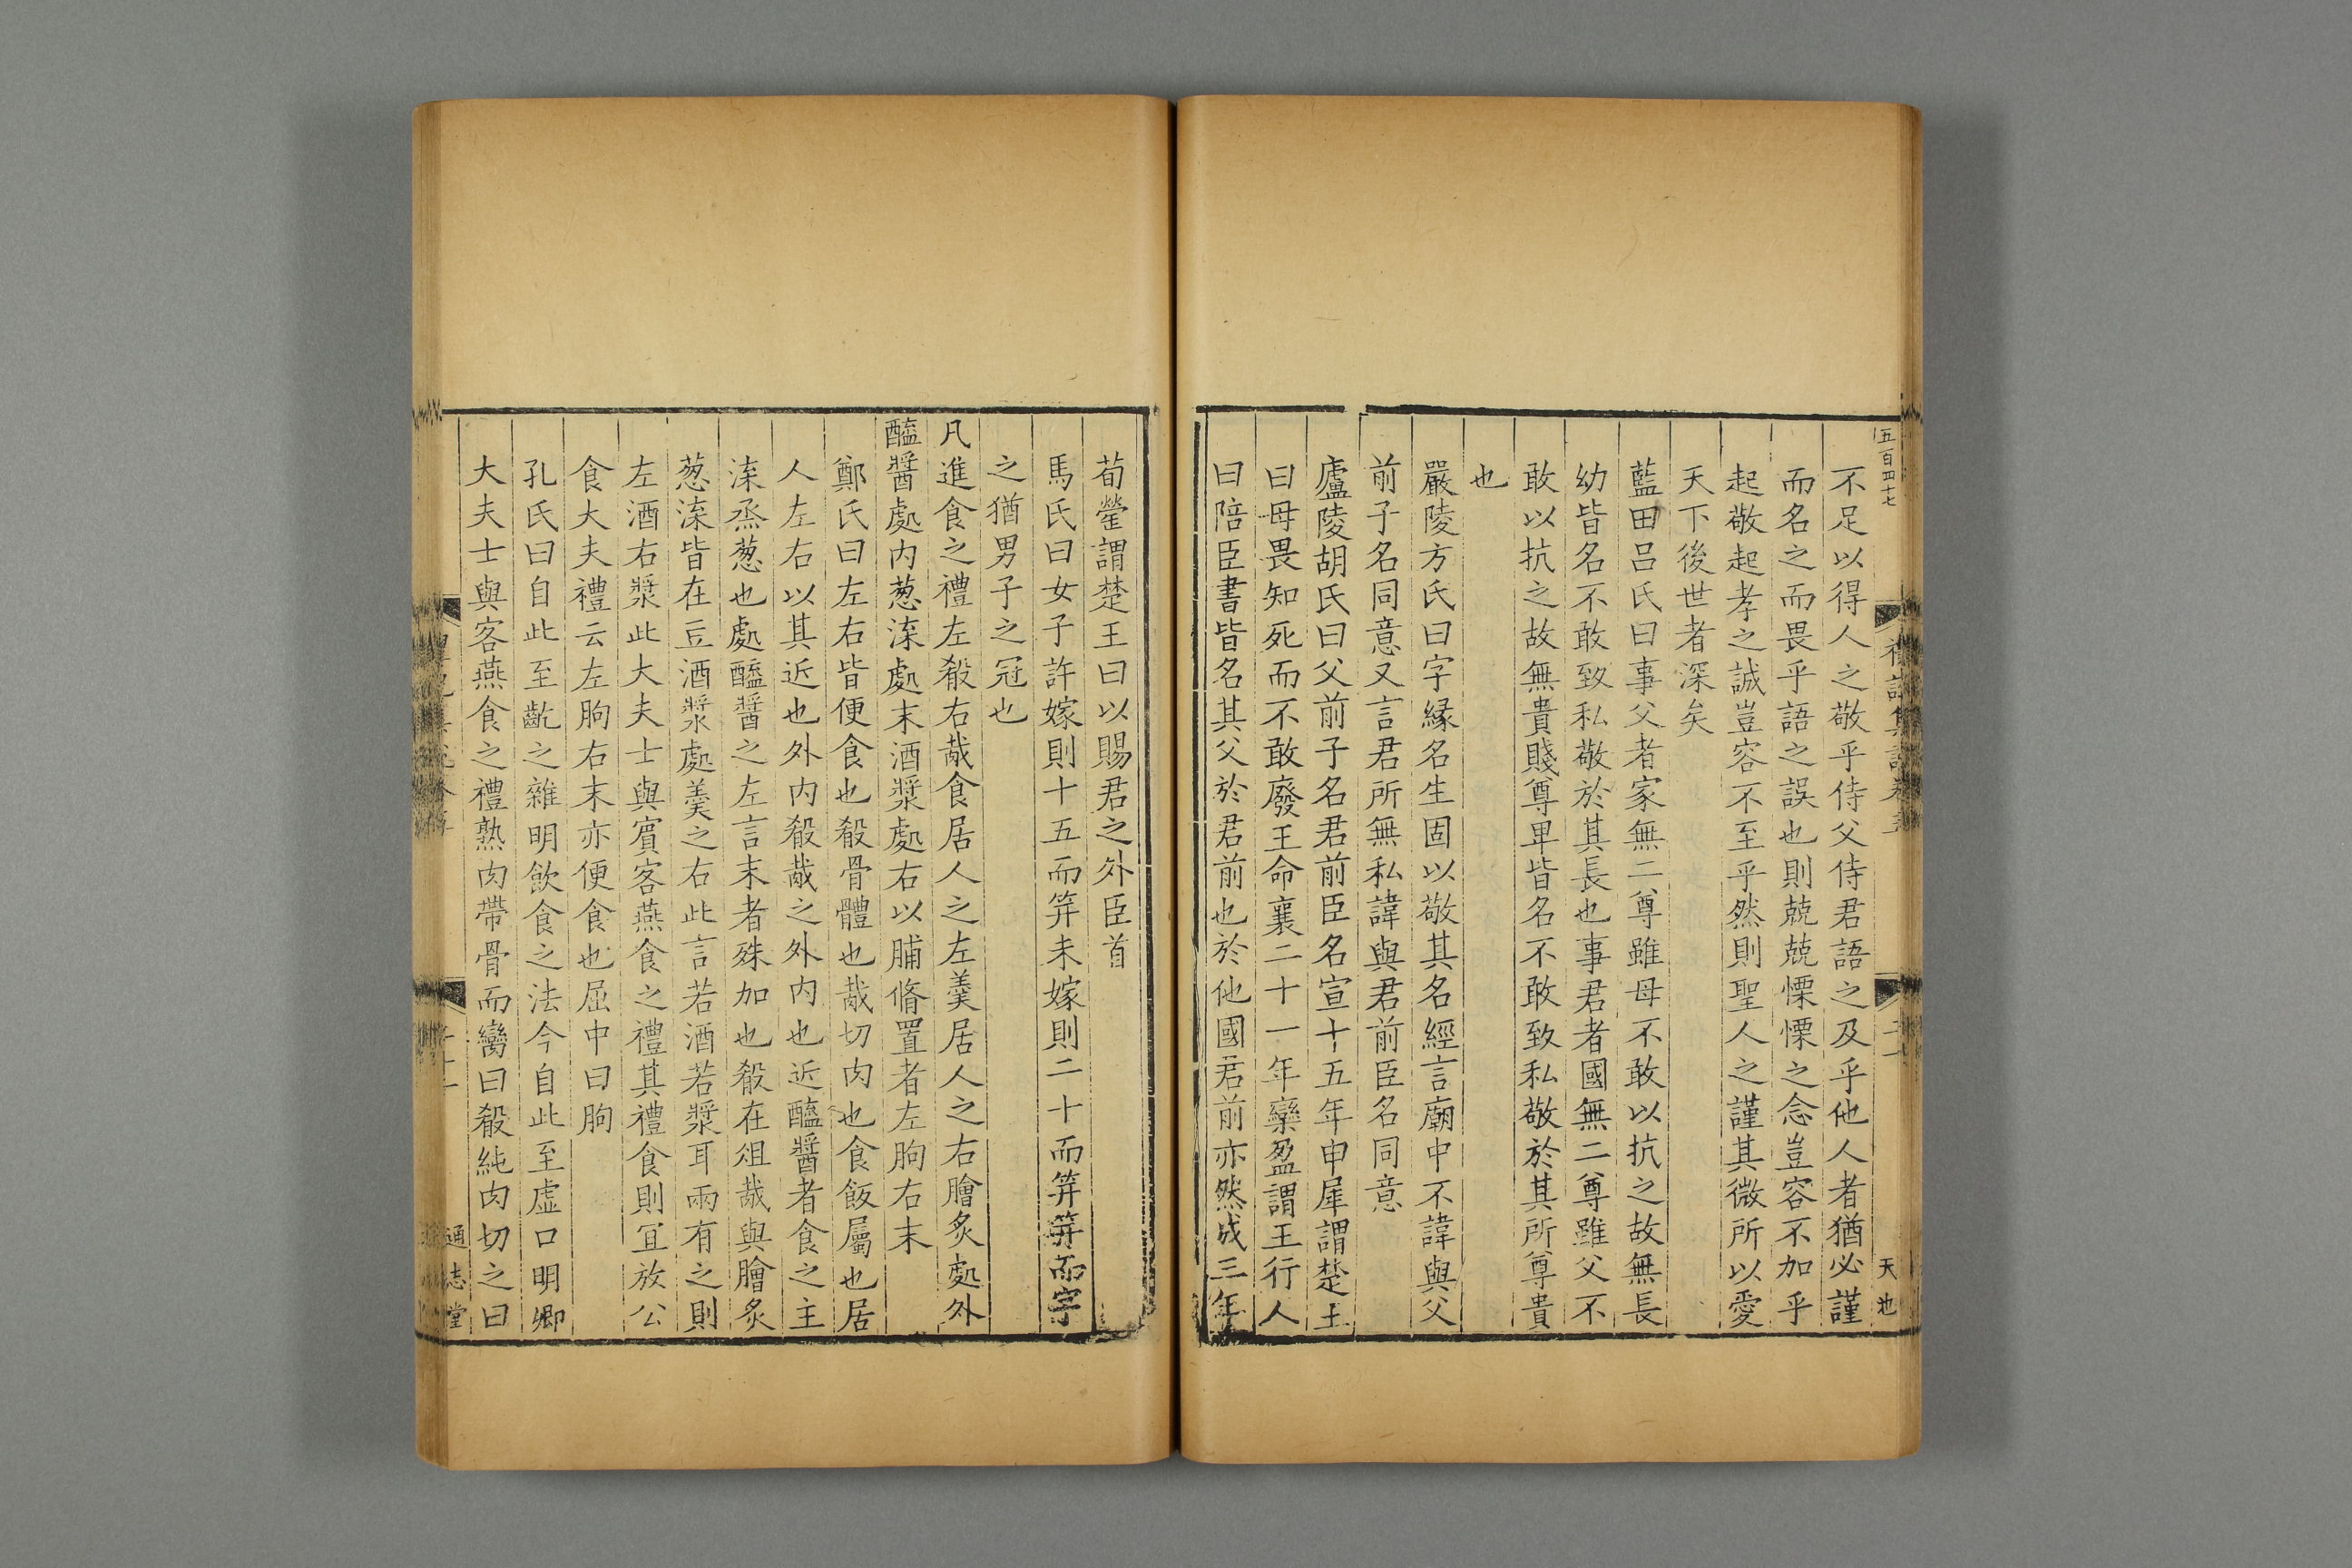 五百四十七
天池
不足以得人之敬乎侍父侍君語之及乎他人者猶必謹
而名之而畏乎語之誤也則兢兢慄慄之念豈容不加乎
起敬起孝之誠豈容不至乎然則聖人之謹其微所以愛
天下後世者深矣
藍田呂氏曰事父者家無二尊雖母不敢以抗之故無長
幼皆名不敢致私敬於其長也事君者國無二尊雖父不
敢以抗之故無貴賤尊卑皆名不敢致私敬於其所尊貴
也
嚴陵方氏曰字縁名生固以敬其名經言廟中不諱與父
前子名同意又言君所無私諱與君前臣名同意
廬陵胡氏曰父前子名君前臣名宣十五年申犀謂楚王
曰毋畏知死而不敢廢王命襄二十一年欒盈謂王行人
曰陪臣書皆名其父於君前也於他國君前亦然成三年
荀瑩謂楚王曰以賜君之外臣首
馬氏曰女子許嫁則十五而筓未嫁則二十而筓筓而字
之猶男子之冠也
凡進食之禮左殽右胾食居人之左羹居人之右膾炙處外
醯醬處内葱渿處末酒漿處右以脯脩置者左朐右末
鄭氏曰左右皆便食也殽骨體也胾切肉也食飯屬也居
人左右以其近也外内殽胾之外内也近醯醬者食之主
渿烝葱也處醯醬之左言末者殊加也殽在俎胾與膾炙
葱渿皆在豆酒漿處羹之右此言若酒若漿耳兩有之則
左酒右漿此大夫士與賓客燕食之禮其禮食則宜放公
食大夫禮云左朐右末亦便食也屈中曰朐
孔氏曰自此至齔之雜明飲食之法今自此至虛口明卿
大夫士與客燕食之禮熟肉帶骨而臠曰殽純肉切之曰
通志堂